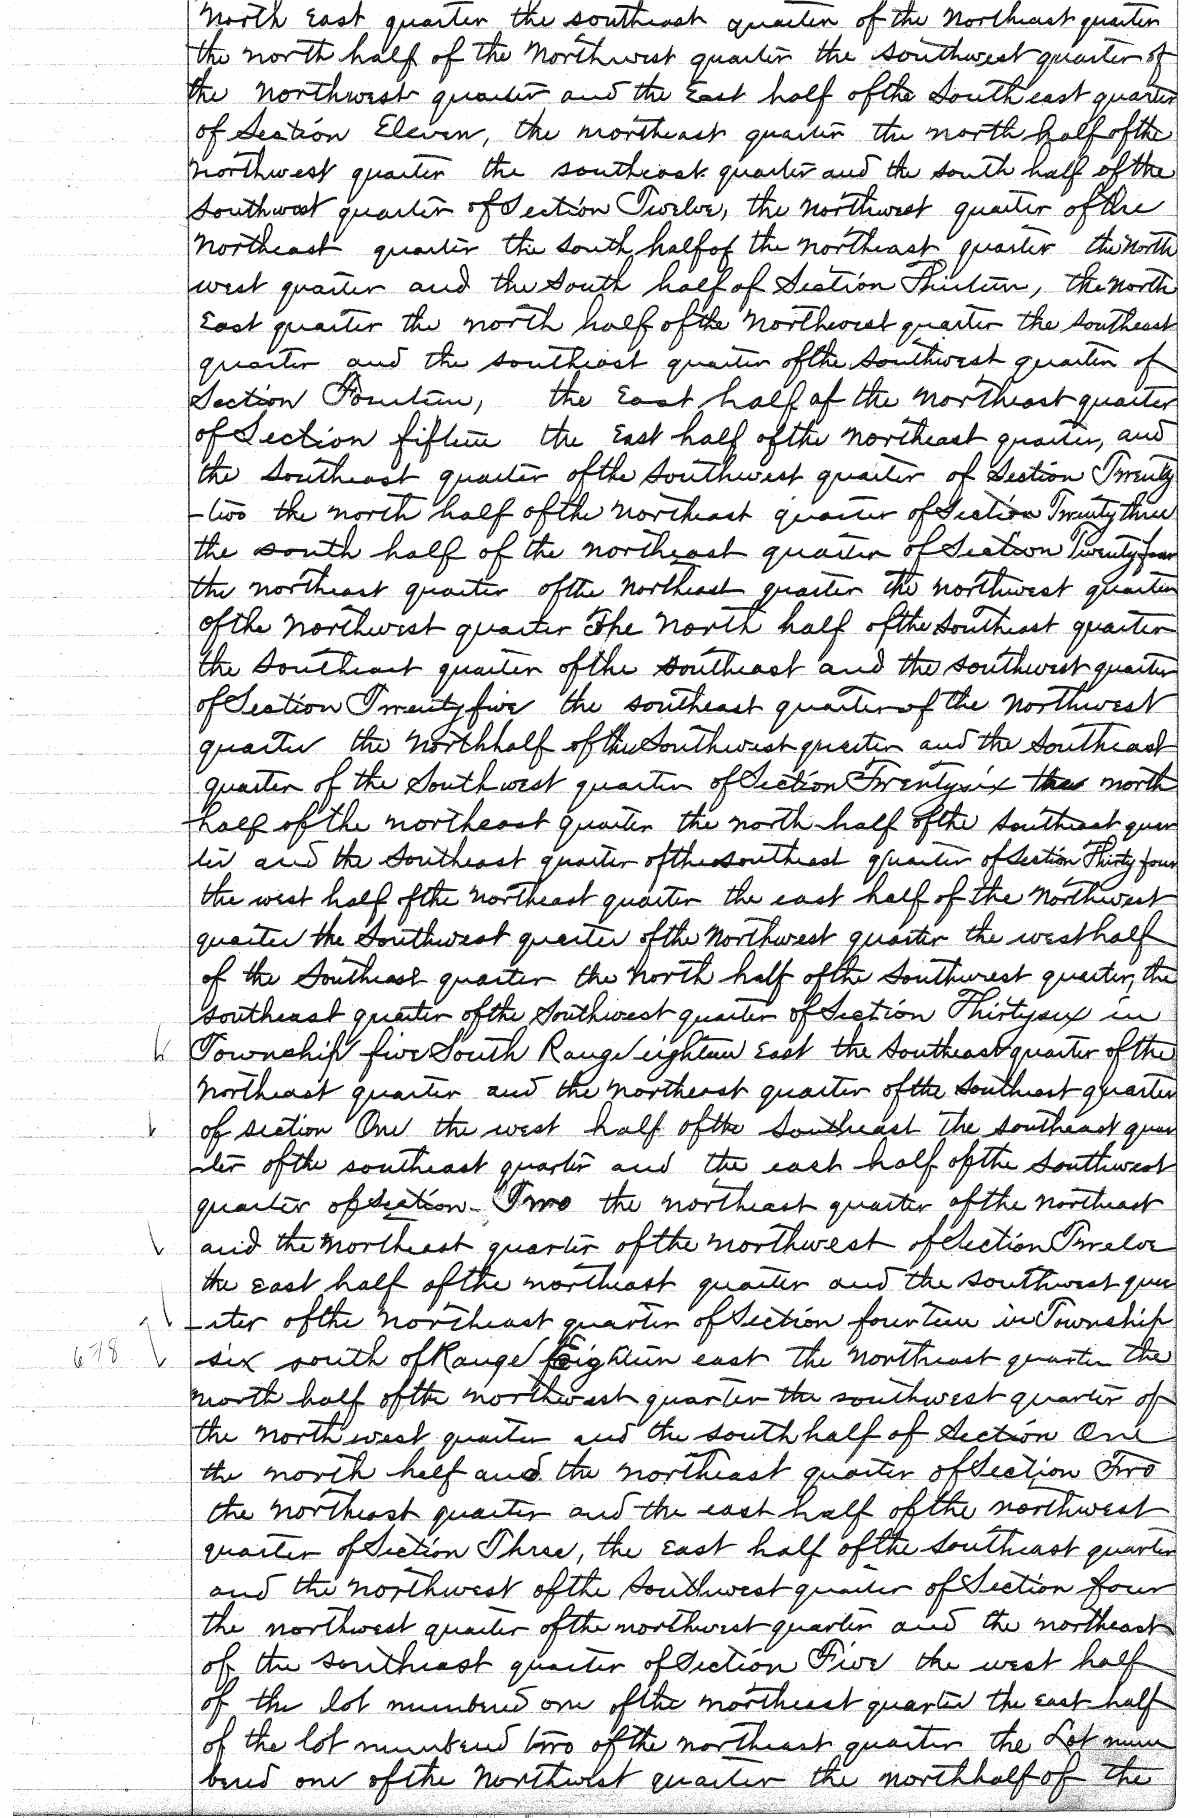 North East quarter the southeast quarter of the Northeast quarter
the north half of the Northwest quarter the southwest quarter of
the Northwest quarter and the East half of the Southeast quarter
of Section Eleven, the northeast quarter the north half of the
Northwest quarter the southeast quarter and the south half of the
Southwest quarter of Section Twelve, the Northwest quarter of the
Northeast quarter the south half of the northeast quarter the North
west quarter and the South half of Section Thirteen, the North
East quarter the north half of the Northwest quarter the southeast
quarter and the southeast quarter of the Southwest quarter of
Section Fourteen, the East half of the Northeast quarter
of Section fifteen the East half of the Northeast quarter, and
the Southeast quarter of the Southwest quarter of Section Twenty
-two the north half of the Northeast quarter of Section Twenty three
the south half of the northeast quarter of Section Twenty four
the northeast quarter of the Northeast quarter the northwest quarter
of the Northwest quarter The North half of the Southeast quarter
the Southeast quarter of the Southeast and the southwest quarter
of Section Twenty five the southeast quarter of the Northwest
quarter the North half of the Southwest quarter and the Southeast
quarter of the Southwest quarter of Section Twenty six the north
half of the northeast quarter the north half of the Southeast quar
ter and the Southeast quarter of the southeast quarter of Section Thirty four
the west half of the Northeast quarter the east half of the Northwest
quarter the Southwest quarter of the Northwest quarter the west half
of the Southeast quarter the North half of the Southwest quarter, the
southeast quarter of the Southwest quarter of Section Thirty six in
Township five South Range eighteen East the Southeast quarter of the
Northeast quarter and the northeast quarter of the Southeast quarter
of section One the west half of the Southeast the southeast quar
-ter of the southeast quarter and the east half of the Southwest
quarter of section Two the northeast quarter of the Northeast
and the Northeast quarter of the northwest of Section Twelve
the East half of the northeast quarter and the southwest quar
-ter of the Northeast quarter of Section fourteen in Township
678 six south of Range Eighteen east the Northeast quarter the
north half of the northwest quarter the southwest quarter of
the North west quarter and the south half of Section One
the north half and the northeast quarter of Section Two
the Northeast quarter and the east half of the northwest
quarter of Section Three, the East half of the Southeast quarter
and the northwest of the Southwest quarter of Section four
the northwest quarter of the northwest quarter and the northeast
of the southeast quarter of Section Five the west half
of the lot numbered one of the northeast quarter the East half
of the lot numbered two of the northeast quarter the Lot num
bered one of the Northwest quarter the north half of the